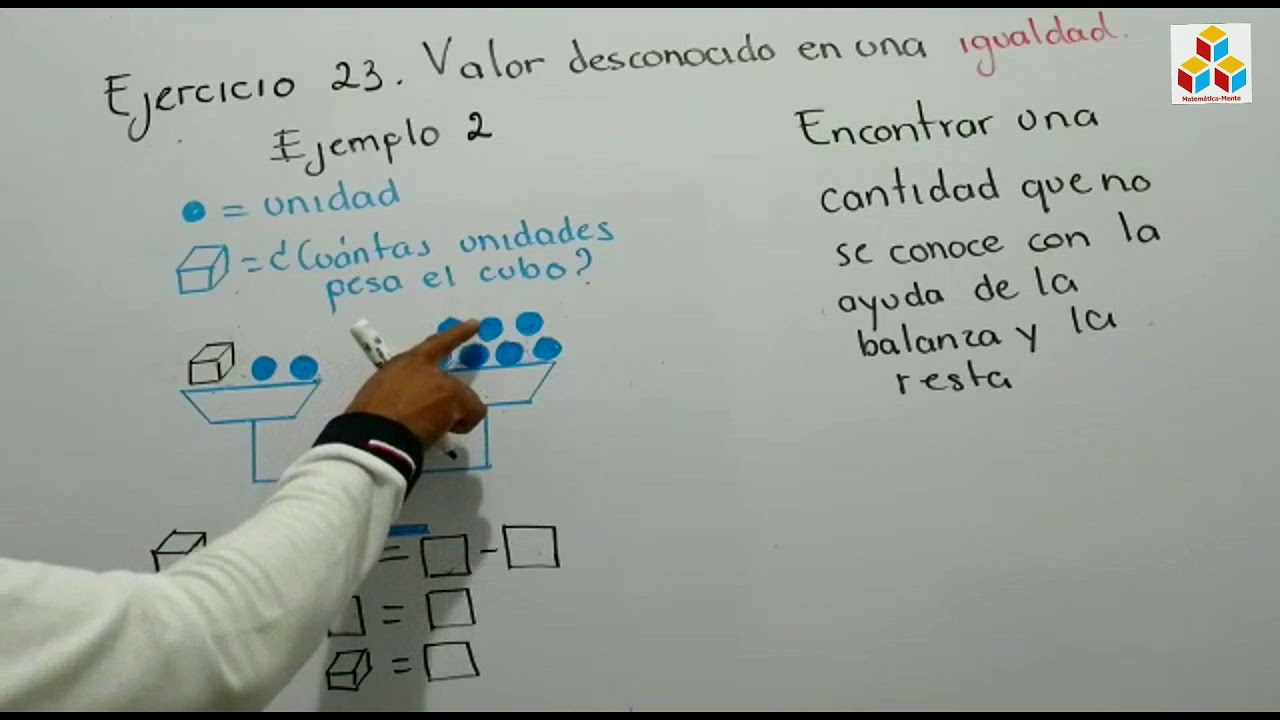 Ejercicio 23. Valor desconocido en una igualdad.
Ejemplo 2
= unidad
= ¿Cuántas unidades
pesa el cubo?
= -
=
=
Encontrar una
cantidad que no
se conoce con la
ayuda de la
balanza y la
resta
Matemática-Mente